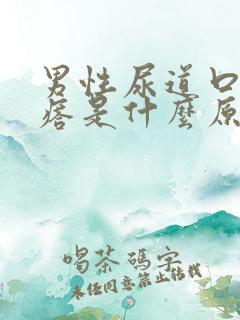 男性尿道口
痞是什麼原
喝茶碼字
未经同意禁止转载